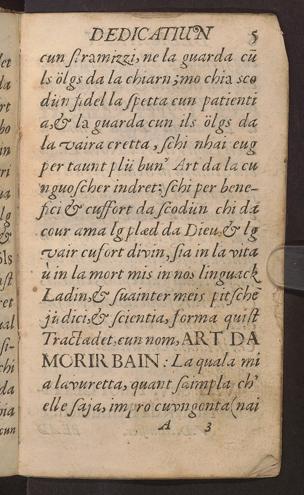 DEDICATIUN 5
cun stramizzi, ne la guarda cū
ls ölgs da la chiarn; mo chia sco
dün fidel la spetta cun patienti
a, & la guarda cun ils ölgs da
la vaira cretta, schi nhai eug
per taunt plü bun Art da la cu
nguoscher indret: schi per bene-
fici & cuffort da scodün chi da
cour ama lg plæd da Dieu, & lg
vair cufort divin, sia in la vita
ù in la mort mis in nos linguack
Ladin, & suainter meis pitsche
judici, & scientia, forma quist
Tractadet, cun nom, ART DA
MORIR BAIN: La quala mi
a lavuretta, quant saimpla ch'
elle saja, impro cuvngonta (nai
A 3